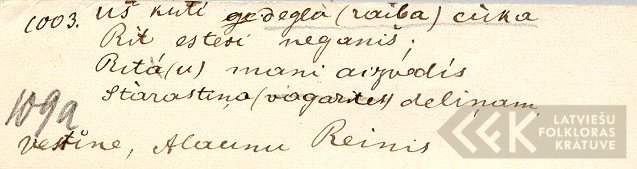 1003. Uš kuti gedegla (raiba) cūka
Rit estesi neganiš;
Rītá(u) mani aizvedīs
Stārastiņa (vagarites) deliņam,
109a
Vestīne, Alaunu Reinis
LFK LATVIEŠU
FOLKLORAS
KRĀTUVE